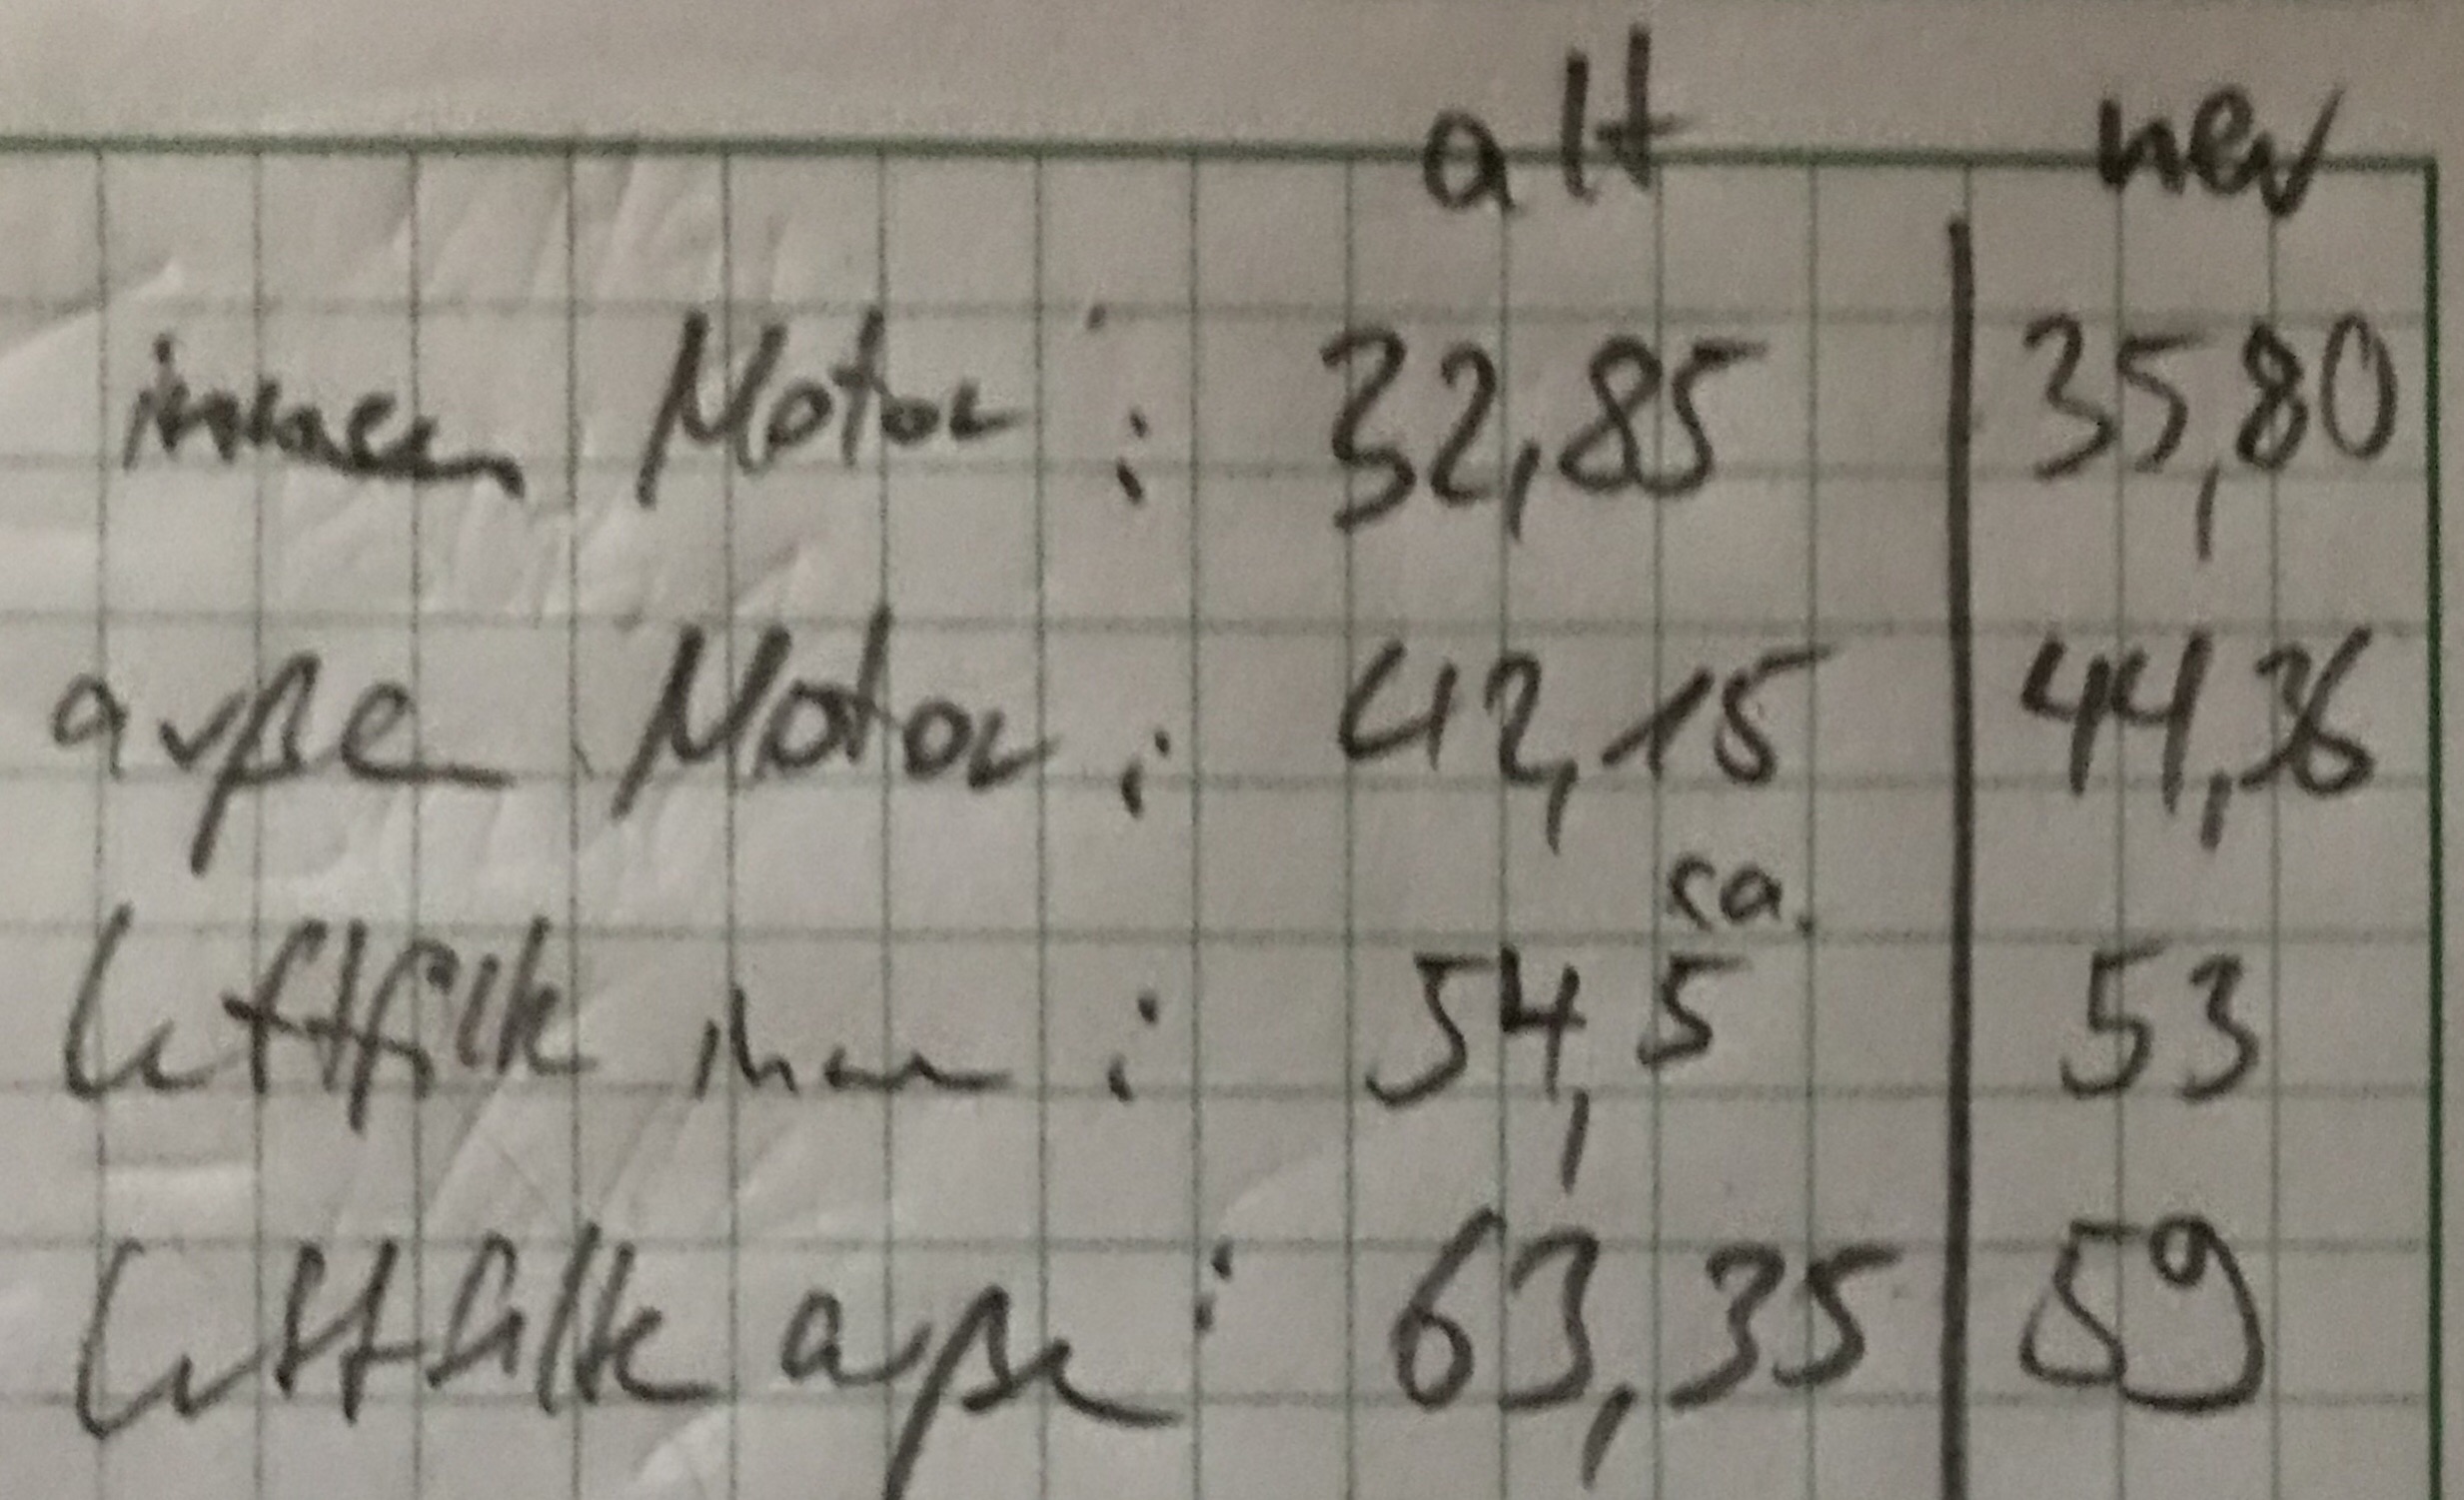 alt neu
innen Motor: 32,85 35,80
außen Motor: 42,15 44,36
ca.
Luftfilter innen: 54,5 53
Luftfilter außen: 63,35 59